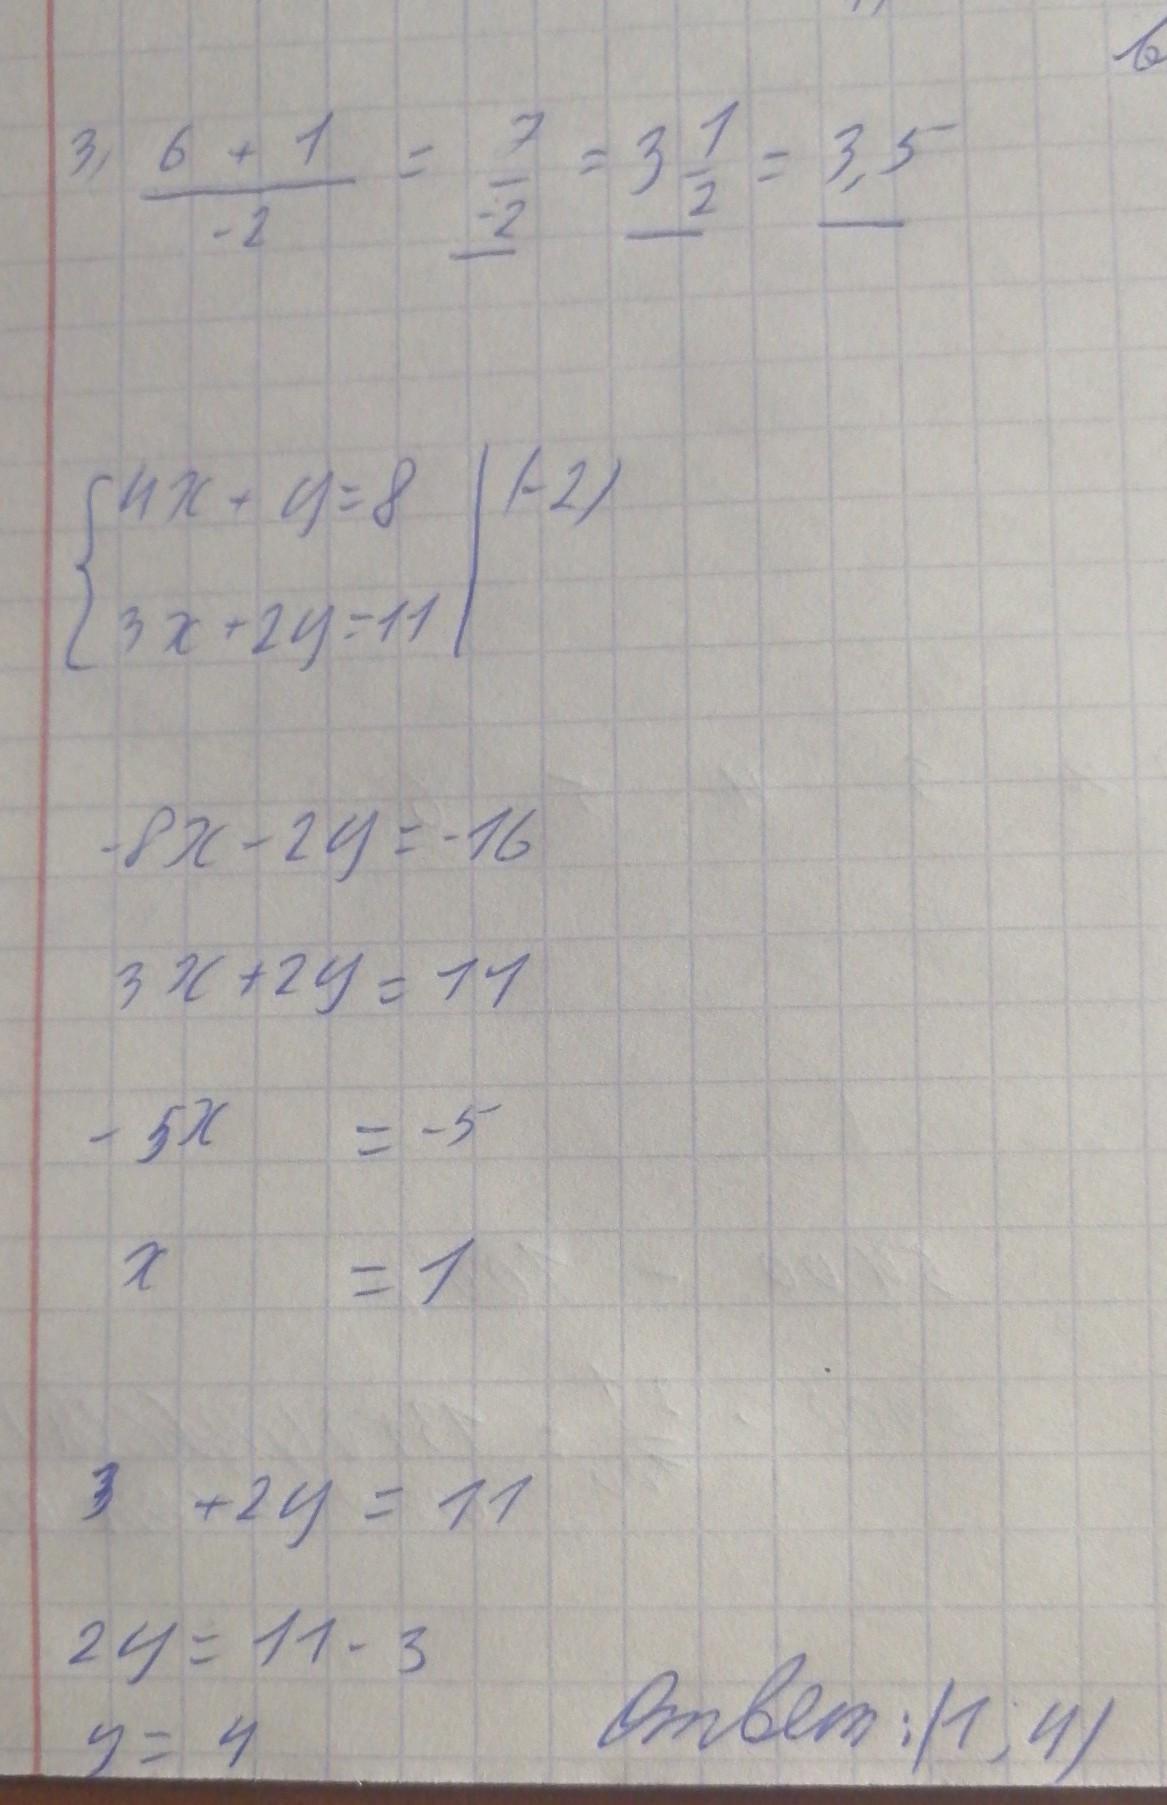 3, 6 + 1 / -2 = 7 / -2 = 3 1/2 = 3,5
{ 4x + y = 8 | (-2)
3x + 2y = 11 |
-8x - 2y = -16
3x + 2y = 11
- 5x = -5
x = 1
3 + 2y = 11
2y = 11 - 3
y = 4
Ответ: (1; 4)